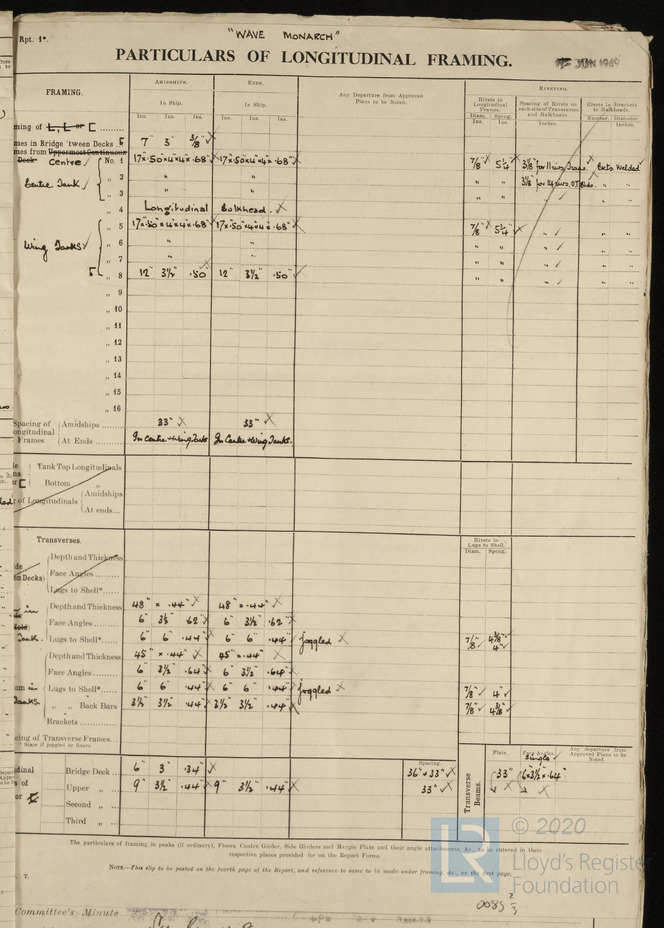 Rpt. 1*.
"WAVE MONARCH"
PARTICULARS OF LONGITUDINAL FRAMING.
JUN 1949
FRAMING.
AMIDSHIPS.
ENDS.
Any Departure from Approved Plans to be Noted.
RIVETING.
In Ship.
In Ship.
Rivets in Longitudinal Frames.
Spacing of Rivets on each side of Transverses and Bulkheads.
Rivets in Brackets to Bulkheads.
Ins. Ins. Ins. Ins. Ins. Ins.
Diam. Ins. Spcng. Ins.
Inches.
Number. Diameter Inches.
ming of L, L or [
mes in Bridge 'tween Decks 7" 3" 3/8"
mes from Uppermost Continuous
Deck Centre No. 1 17×.50×4×4×.68" 17×.50×4×4×.68" 7/8" 5 1/4" 3 1/8" for Bkts Welded
Centre Tank " 2 " " " " 3 1/8" for
" 3 " "
" 4 Longitudinal Bulkhead.
Wing Tanks " 5 17×.50×4×4×.68" 17×.50×4×4×.68" 7/8" 5 1/4"
" 6 " "
" 7 " "
" 8 12" 3 1/2" .50" 12" 3 1/2" .50"
" 9
" 10
" 11
" 12
" 13
" 14
" 15
" 16
Spacing of Longitudinal Frames
Amidships 33" 33"
At Ends In Centre & Wing Tanks In Centre & Wing Tanks.
Tank Top Longitudinals
Bottom "
of Longitudinals
Amidships
At ends
Transverses.
Rivets in Lugs to Shell.
Diam. Spcng.
Depth and Thickness
Face Angles
Lugs to Shell*
Depth and Thickness 48" × .44" 48" × .44"
Face Angles 6" 3 1/2" .62" 6" 3 1/2" .62"
Lugs to Shell* 6" 6" .44" 6" 6" .44" joggled 7/8" 4 3/8" 4"
Depth and Thickness 45" × .44" 45" × .44"
Face Angles 6" 3 1/2" .64" 6" 3 1/2" .64"
Lugs to Shell* 6" 6" .44" 6" 6" .44" joggled 7/8" 4"
" " Back Bars 3 1/2" 3 1/2" .44" 3 1/2" 3 1/2" .44" 7/8" 4 3/8"
Brackets
cing of Transverse Frames.
* State if joggled or liners.
Spacing.
Transverse Beams.
Plate. Face Angles. Any departure from Approved Plans to be Noted.
Single
Bridge Deck 6" 3" .34" 36" & 33" 33" 6×3 1/2×.64"
Upper " 9" 3 1/2" .44" 9" 3 1/2" .44" 33"
Second "
Third "
The particulars of framing in peaks (if ordinary), Floors, Centre Girder, Side Girders and Margin Plate and their angle attachments, &c., to be entered in their
respective places provided for on the Report Forms.
NOTE.—This slip to be posted on the fourth page of the Report, and reference to same to be made under framing, &c., on the first page.
T.
© 2020
LR
Lloyd's Register
Foundation
0085 2/3
Committee's Minute